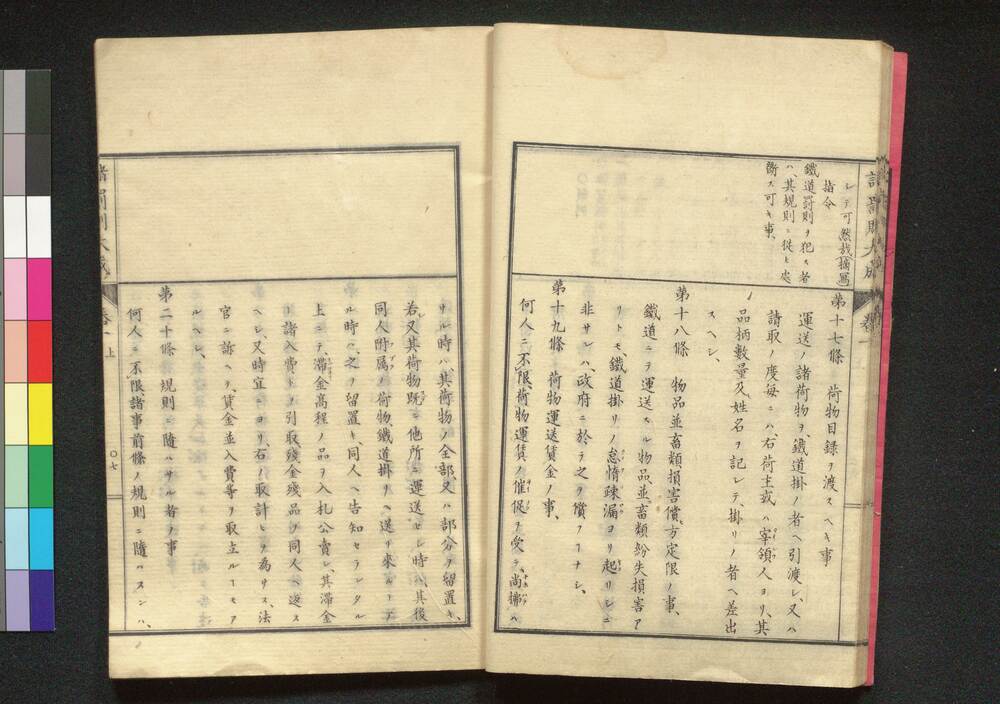 レテ可然哉摘寫
指令
鐵道罰則ヲ犯ス者
ハ、其規則ニ從ヒ處
斷ス可キ事、
第十七條　荷物目録ヲ渡スヘキ事
運送ノ諸荷物ヲ、鐵道掛ノ者ヘ引渡シ、又ハ
請取ノ度毎ニハ、右荷主或ハ宰領人ヨリ、其
品柄數量及姓名ヲ記シテ、掛リノ者ヘ差出
スヘシ、
第十八條　物品並畜類損害償方定限ノ事、
鐵道ニテ運送スル物品並、畜類紛失損害ア
リトモ、鐵道掛リノ怠惰疎漏ヨリ起リシニ
非サレハ、政府ニ於テ之ヲ償フ﹁ナシ、
第十九條　荷物運送賃金ノ事、
何人ニ不限、荷物運賃ノ催促ヲ受テ、尚拂ハ
サル時ハ、其荷物ノ全部、又ハ部分ヲ留置キ、
若又其荷物既ニ他所ニ運送セシ時ハ、其後
同人附属ノ荷物、鐵道掛リヘ送リ來ルトア
ル時ハ、之ヲ留置キ、同人ヘ告知セラレタル
上ニテ、滞金高程ノ品ヲ入札公賣シ、其滞金
諸入費トヲ引取、殘金殘品ヲ同人ヘ返ス
ヘシ、又時宜ニヨリ、右ノ取計ヒヲ為サス、法
官ニ訴ヘテ、賃金並入費等ヲ取立ルトモア
ルヘシ、
第二十條　規則ニ隨ハサル者ノ事
何人ニ不限、諸事前條ノ規則ニ隨ハスンハ、
上
〇七